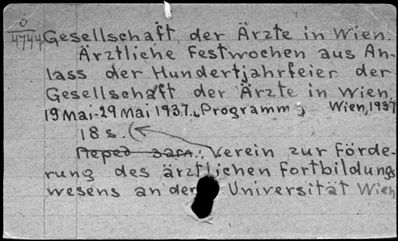 0
4744
Gesellschaft der Ärzte in Wien.
Ärztliche Festwochen aus An-
lass der Hundertjahrfeier der
Gesellschaft der Ärzte in Wien,
19 Mai-29 Mai 1937. „Programm„ Wien, 1937
18 s. (
Перед загл.: Verein zur Förde-
rung des ärztlichen Fortbildungs
wesens an der Universität Wien